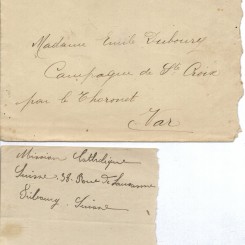 Madame Emile Dubourg
Campagne de Ste Croix
par le Thoronet
Var
Mission Catholique
Suisse. 38. Route de Lausanne
Fribourg. Suisse